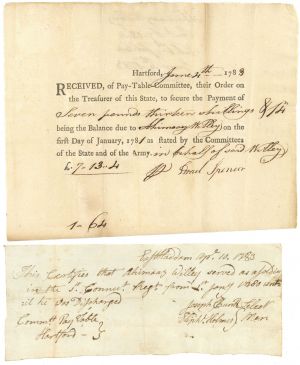 Hartford, June 4th 1783
RECEIVED, of Pay-Table-Committee, their Order on
the Treasurer of this State, to secure the Payment of
Seven pounds thirteen shillings & /4
being the Balance due to Ahimaaz Willey on the
first Day of January, 178 as stated by the Committees
of the State and of the Army. in behalf of said Willey
£ 7-13-4 Spencer
1-64
East Haddam Apr. 10, 1783
This Certifies that Ahimaaz Willey served as a Soldier
in the Connect Regt from 1st Jany 1780 unto
il he was Discharged
Committ Pay Table Joseph
Hartford Holmes Men